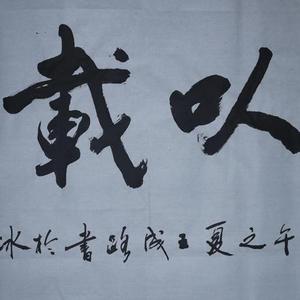 以載
午之夏王成路書於冰